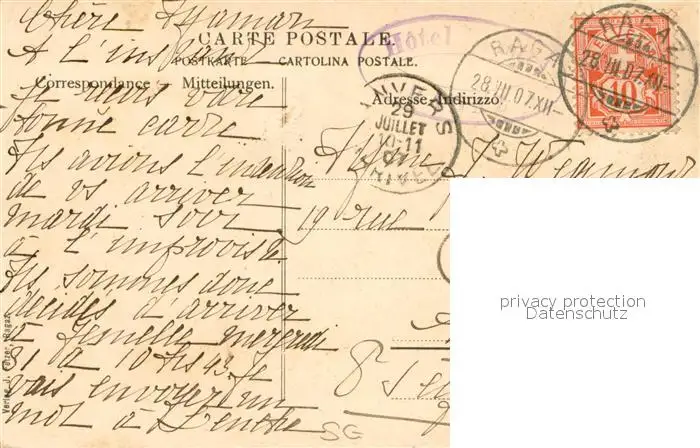 Chère Maman
A l'instant
CARTE POSTALE.
POSTKARTE CARTOLINA POSTALE.
Correspondance – Mitteilungen.
Adresse-Indirizzo
Hôtel
RAGAZ
28.VII.07.XII-
RAGAZ
28.VII.07.
10
ANVERS
29
JUILLET
10-11
07
Je reçois votre
bonne carte
Ns avions l'intention
de vs arriver
mardi soir
à l'improviste
Ns sommes donc
décidés d'arriver
à Jemelle mercredi
31 à 10 hs 43. Je
vais envoyer un
mot à
19 rue
Verlag J. Ragaz
SG
privacy protection
Datenschutz